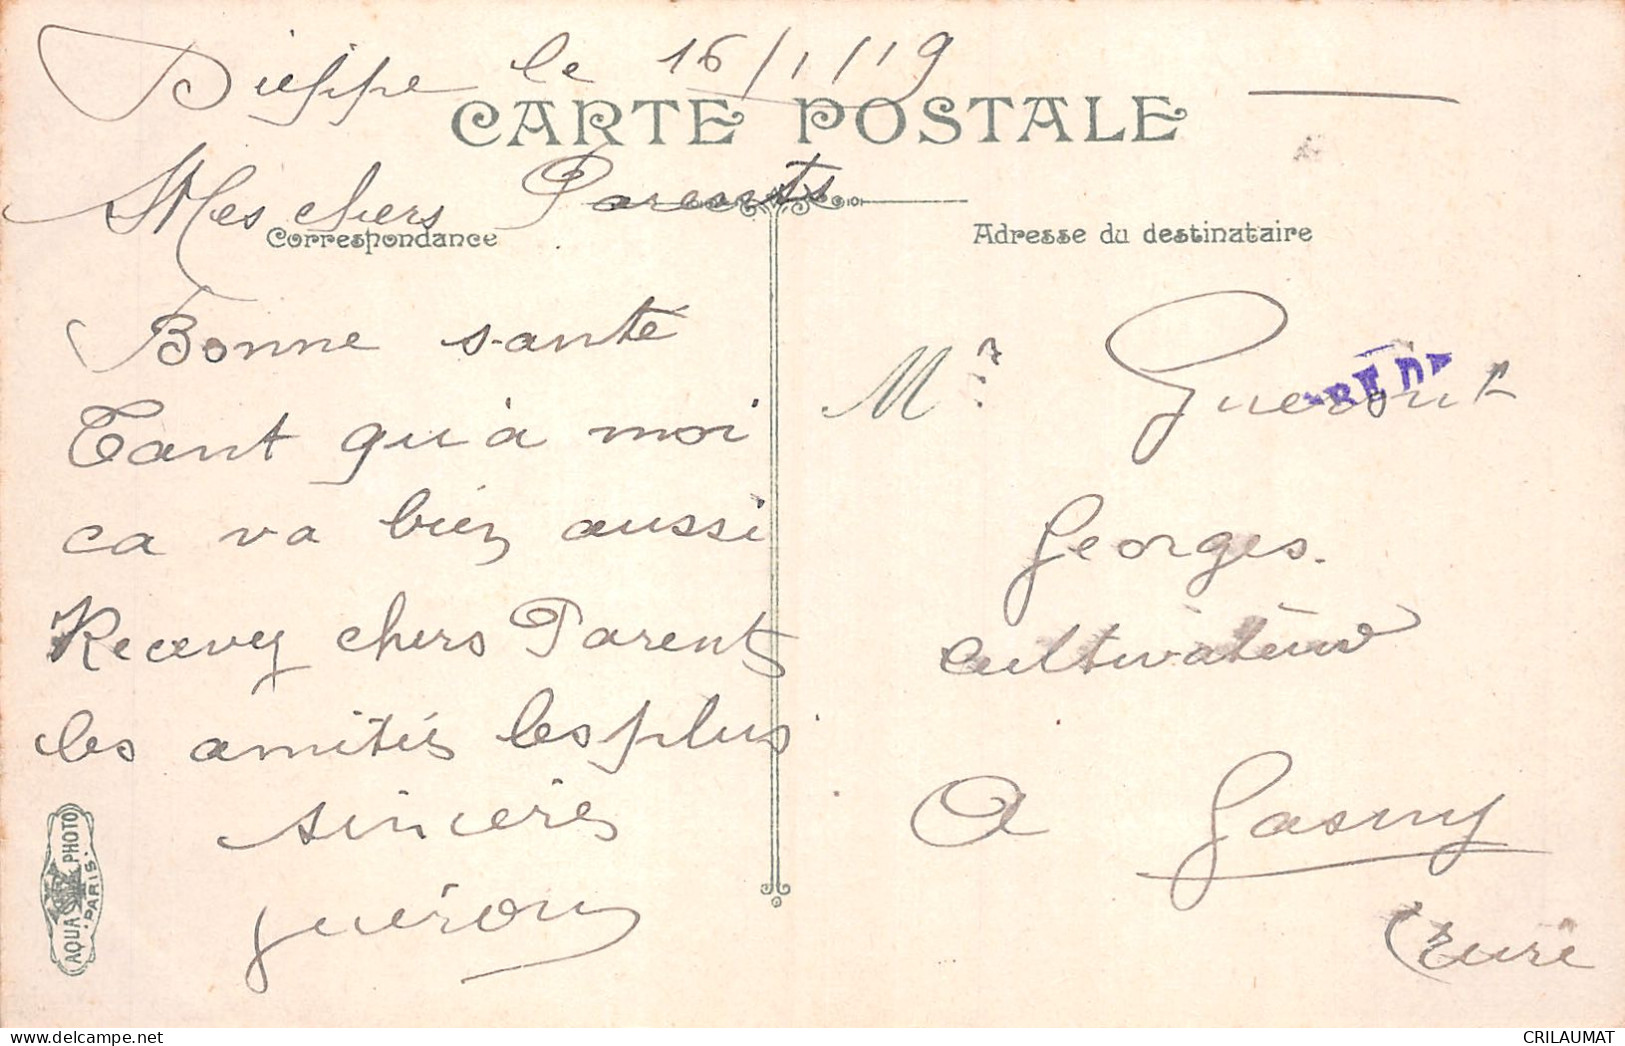 Dieppe le 16/1/19
CARTE POSTALE
Mes chers Parents
Correspondance
Bonne santé
Tant qu'à moi
ca va bien aussi
Recevez chers Parents
les amitiés les plus
sincères
AQUA PHOTO
PARIS
Adresse du destinataire
Mr Guerout
Georges.
cultivateur
A Gasny
Eure
CRILAUMAT